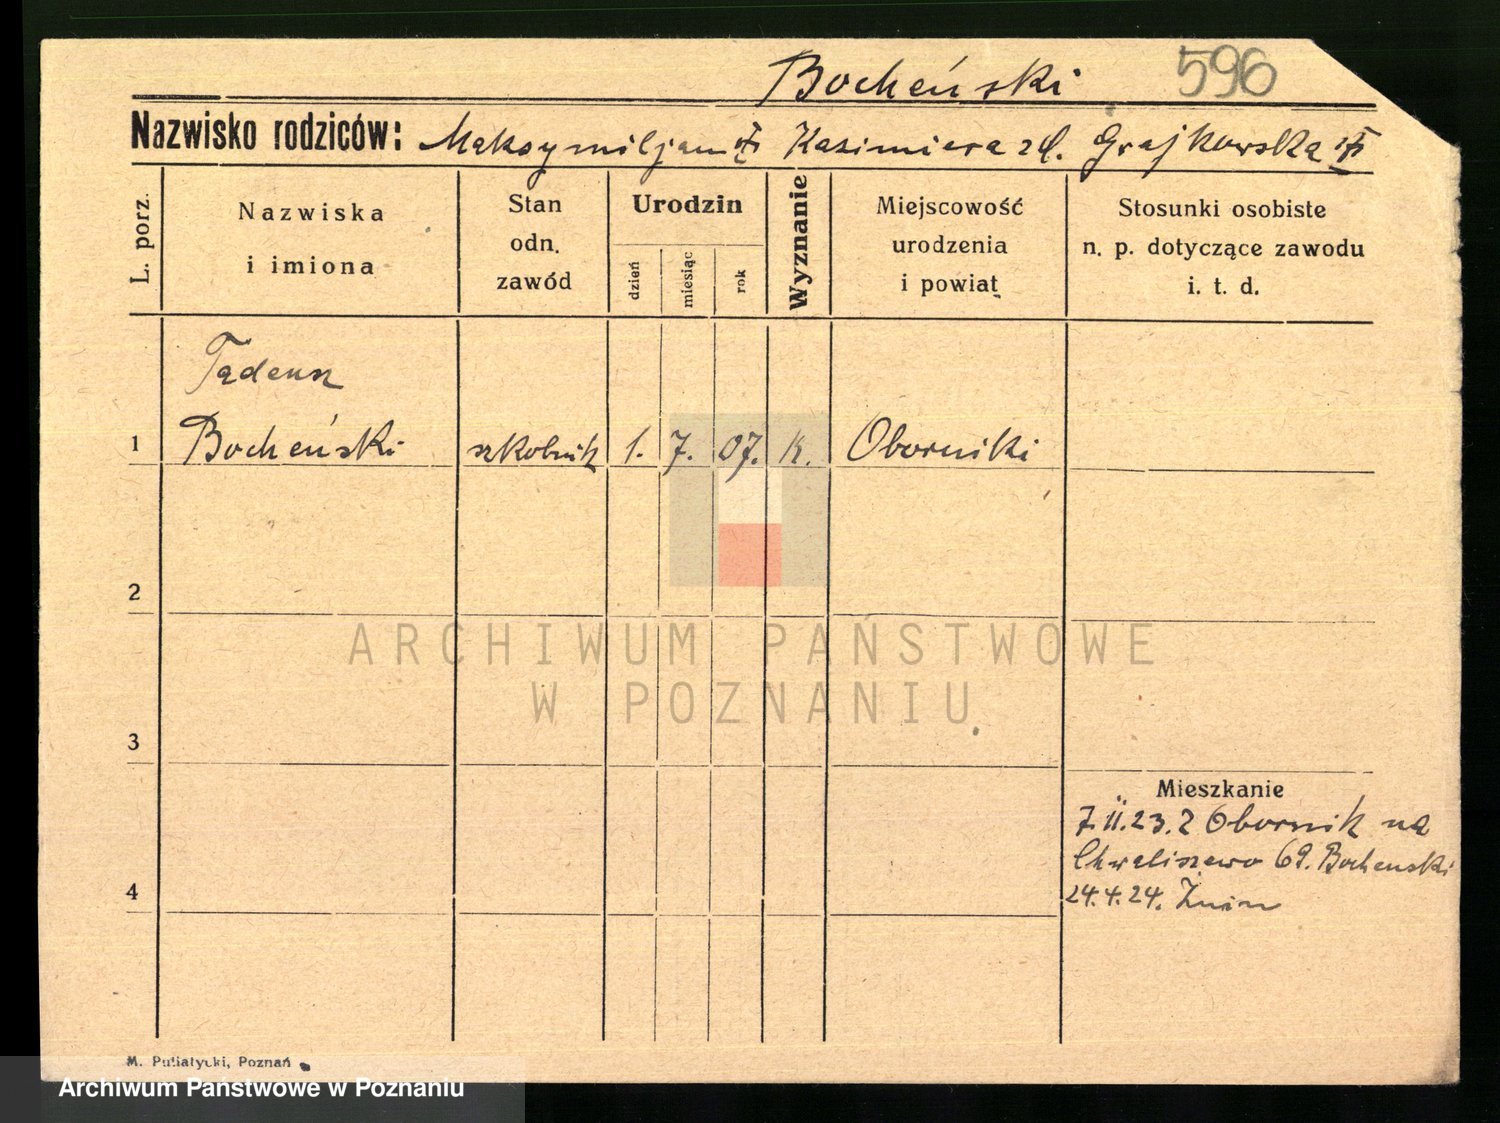 Bocheński 596
Nazwisko rodziców: Maksymiljan Kazimiera zd. Grajkowska
L. porz.
Nazwiska
i imiona
Stan
odn.
zawód
Urodzin
dzień
miesiąc
rok
Wyznanie
Miejscowość
urodzenia
i powiat
Stosunki osobiste
n. p. dotyczące zawodu
i. t. d.
Tadeusz
1 Bocheński szkolnik 1. 7. 07. k. Oborniki
2
ARCHIWUM PAŃSTWOWE
W POZNANIU
3
Mieszkanie
7.II.23. z Obornik na
Chwaliszewo 69. Bochenski
4
24.4.24. Żnin
M. Putiatycki, Poznań
Archiwum Państwowe w Poznaniu